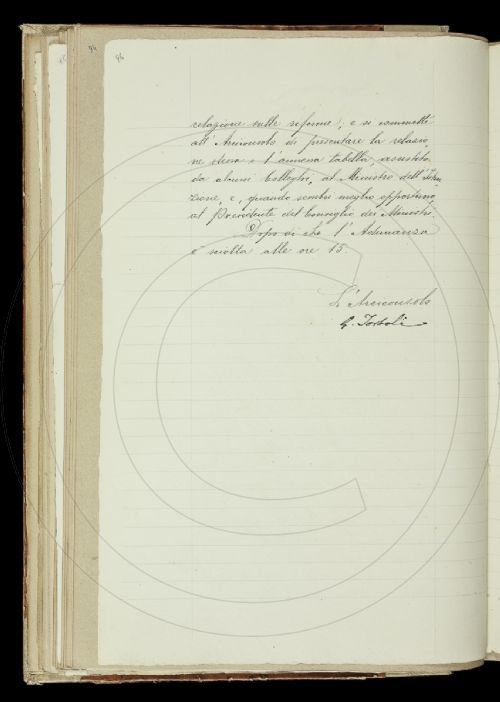 94
96
relazione sulle riforme), e si commette
all'Arciconsolo di presentare la relazio
ne stessa e l'annessa tabella, assistito
da alcuni Colleghi, al Ministro dell'Istru
zione, e, quando sembri meglio opportuno,
al Presidente del Consiglio dei Ministri.
Dopo di che l'Adunanza
è sciolta alle ore 15.
L'Arciconsolo
G. Tortoli